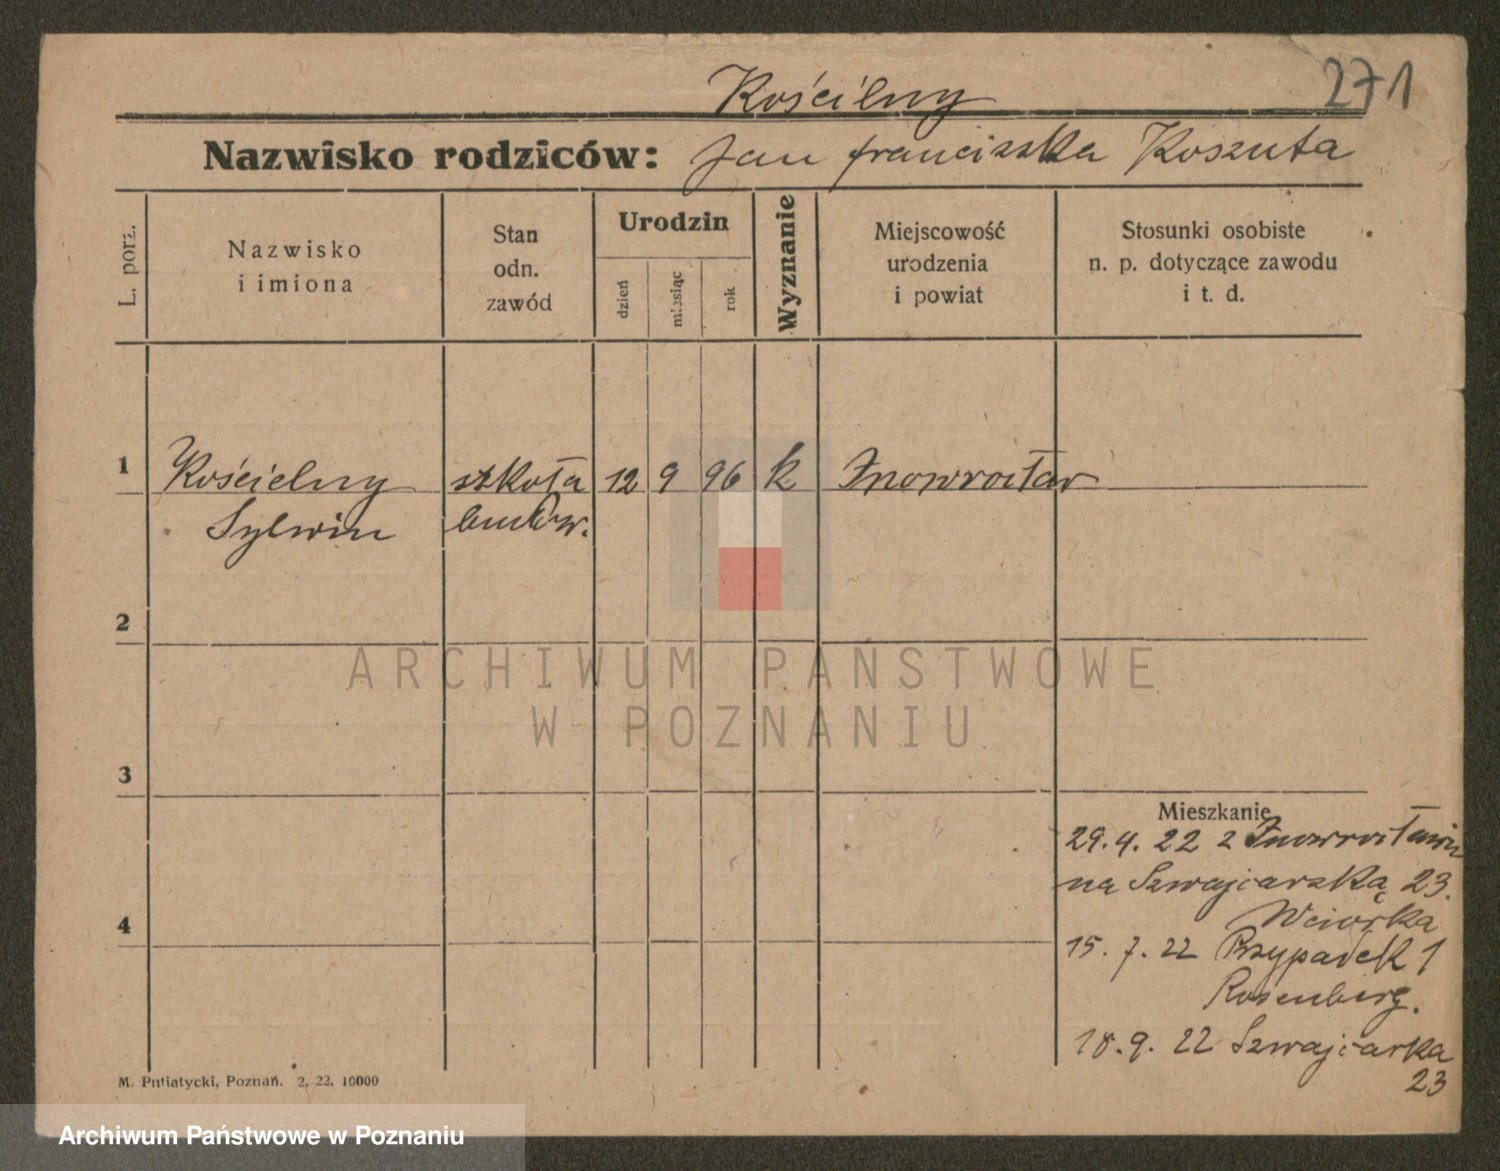 271
Kościlny
Nazwisko rodziców: Jan franciszka Koszuta
L. porz.
Nazwisko
i imiona
Stan
odn.
zawód
Urodzin
dzień
miesiąc
rok
Wyznanie
Miejscowość
urodzenia
i powiat
Stosunki osobiste
n. p. dotyczące zawodu
i t. d.
1
Kościelny szkoła 12 9 96 k Inowrocław
Sylwin budow.
2
ARCHIWUM PAŃSTWOWE
W POZNANIU
3
Mieszkanie
29.4.22 z Inowrocławia
na Szwajcarską 23.
Wciorka
4
15.7.22 Przypadek 1
Rosenberg.
18.9.22 Szwajcarka
23
M. Putiatycki, Poznań. 2. 22. 10000
Archiwum Państwowe w Poznaniu